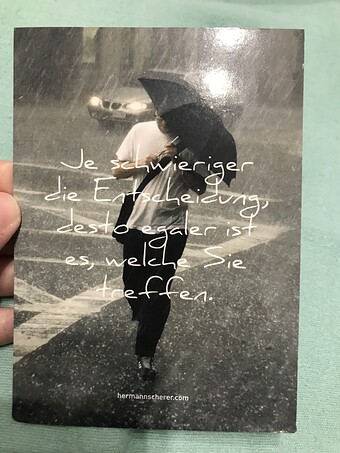 Je schwieriger
die Entscheidung,
desto egaler ist
es, welche Sie
treffen.
hermannscherer.com